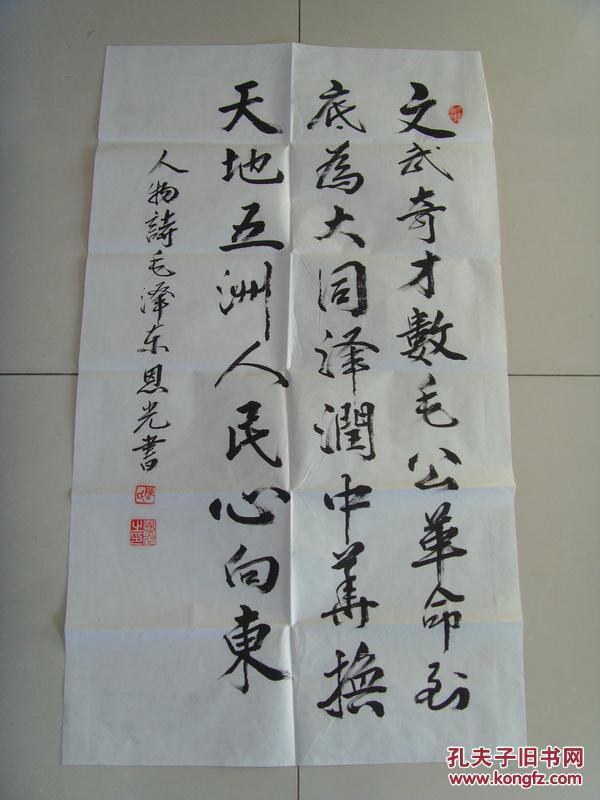 文武奇才數毛公革命到
底為大同泽潤中華換
天地五洲人民心向東
人物詩毛泽东恩光書
孔夫子旧书网
www.kongfz.com